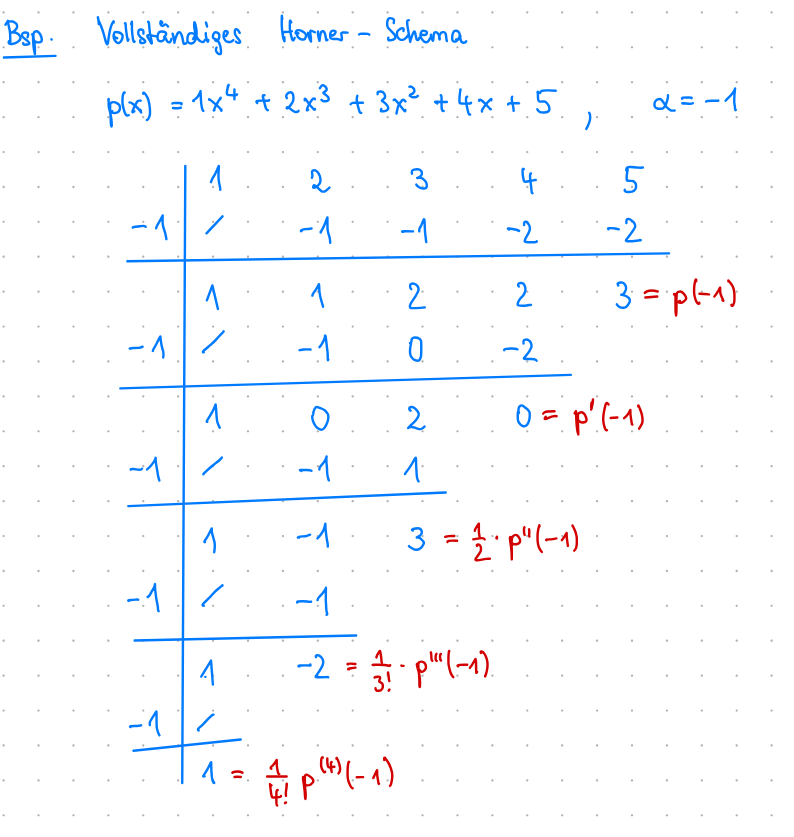 Bsp. Vollständiges Horner-Schema
p(x) = 1x⁴ + 2x³ + 3x² + 4x + 5 , α = -1
1 2 3 4 5
-1 / -1 -1 -2 -2
1 1 2 2 3 = p(-1)
-1 / -1 0 -2
1 0 2 0 = p'(-1)
-1 / -1 1
1 -1 3 = 1/2 · p''(-1)
-1 / -1
1 -2 = 1/3! · p'''(-1)
-1 /
1 = 1/4! p⁽⁴⁾(-1)